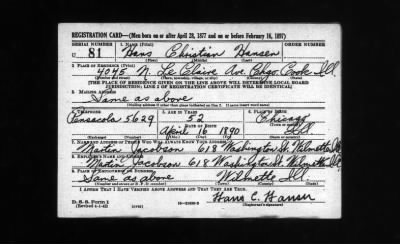 REGISTRATION CARD—(Men born on or after April 28, 1877 and on or before February 16, 1897)
SERIAL NUMBER 1. NAME (Print) ORDER NUMBER
U 81 Hans Christian Hansen
2. PLACE OF RESIDENCE (Print)
4045 N. Le Claire Ave. Chgo. Cook Ill.
[THE PLACE OF RESIDENCE GIVEN ON THE LINE ABOVE WILL DETERMINE LOCAL BOARD
JURISDICTION; LINE 2 OF REGISTRATION CERTIFICATE WILL BE IDENTICAL]
3. MAILING ADDRESS
Same as above
4. TELEPHONE 5. AGE IN YEARS 6. PLACE OF BIRTH
Pensacola 5629 52 Chicago
DATE OF BIRTH
April 16 1890 Ill.
7. NAME AND ADDRESS OF PERSON WHO WILL ALWAYS KNOW YOUR ADDRESS
Martin Jacobson 618 Washington St. Wilmette Ill.
8. EMPLOYER'S NAME AND ADDRESS
Martin Jacobson 618 Washington St. Wilmette Ill.
9. PLACE OF EMPLOYMENT OR BUSINESS
Same as above Wilmette Ill.
I AFFIRM THAT I HAVE VERIFIED ABOVE ANSWERS AND THAT THEY ARE TRUE.
D. S. S. Form 1
(Revised 4-1-42) Hans C. Hansen
(Registrant's signature)